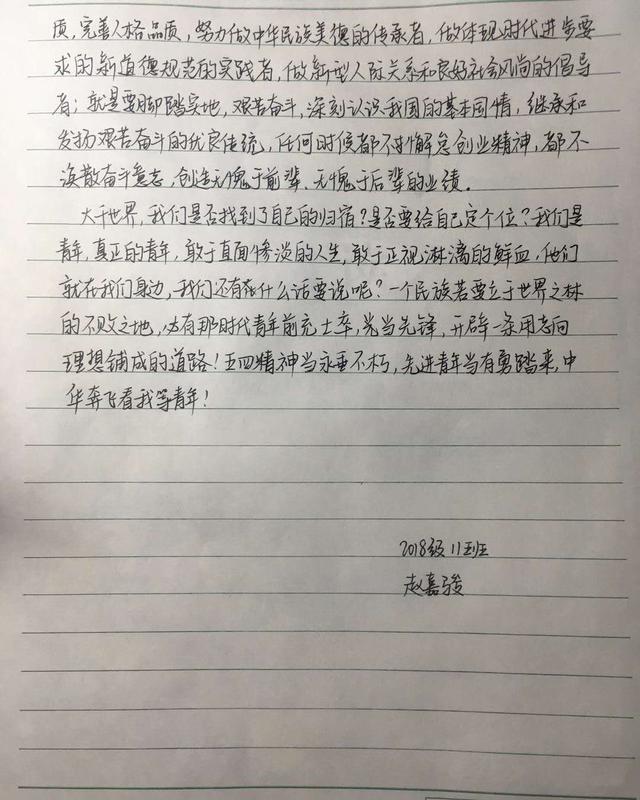 质，完善人格品质，努力做中华民族美德的传承者，做体现时代进步要
求的新道德规范的实践者，做新型人际关系和良好社会风尚的倡导
者；就是要脚踏实地，艰苦奋斗，深刻认识我国的基本国情，继承和
发扬艰苦奋斗的优良传统，任何时候都不懈怠创业精神，都不
涣散奋斗意志，创造无愧于前辈、无愧于后辈的业绩。
大千世界，我们是否找到了自己的归宿？是否要给自己定个位？我们是
青年，真正的青年，敢于直面惨淡的人生，敢于正视淋漓的鲜血，他们
就在我们身边，我们还有什么话要说呢？一个民族若要立于世界之林
的不败之地，必有那时代青年前充士卒，先当先锋，开辟一条用志向
理想铺成的道路！五四精神当永垂不朽，先进青年当有勇踏来，中
华奔飞看我等青年！
2018级11班
赵嘉骏